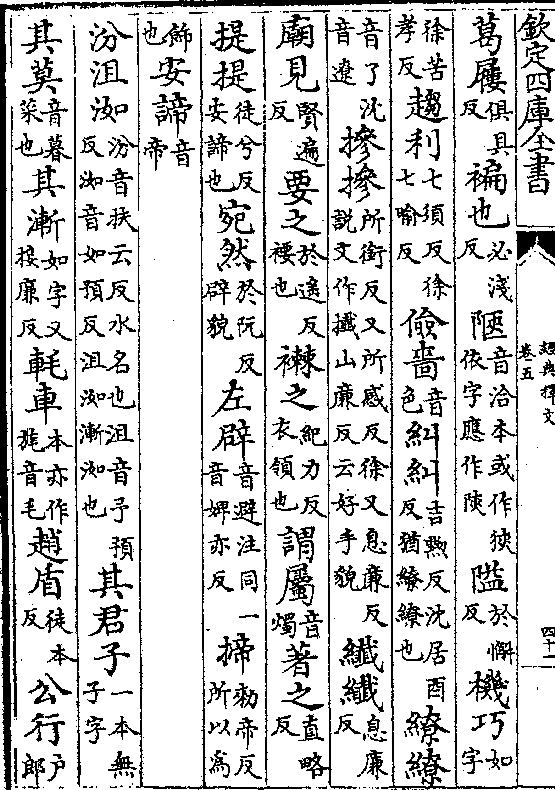 欽定四庫全書
經典釋文
卷五
四十一
葛屨俱具反褊也必淺反陿音洽本或作狹依字應作陝隘於懈反機巧如字
徐苦孝反趨利七須反徐七喻反儉嗇音色糾糾吉黝反沈居酉反猶繚繚也繚繚
音了沈音遼摻摻所銜反又所感反徐又息廉反說文作攕山廉反云好手貌纖纖息廉反
廟見賢遍反要之於遙反褄也襋之紀力反衣領也謂屬音燭著之直略反
提提徒兮反安諦也宛然於阮反辟貌左辟音避注同一音婢亦反揥勑帝反所以為
飾也安諦音帝
汾沮洳汾音扶云反水名也沮音子預反洳音如預反沮洳漸洳也其君子一本無子字
其莫音暮菜也其漸如字又接廉反軞車本亦作旄音毛趙盾徒本反公行戶郎